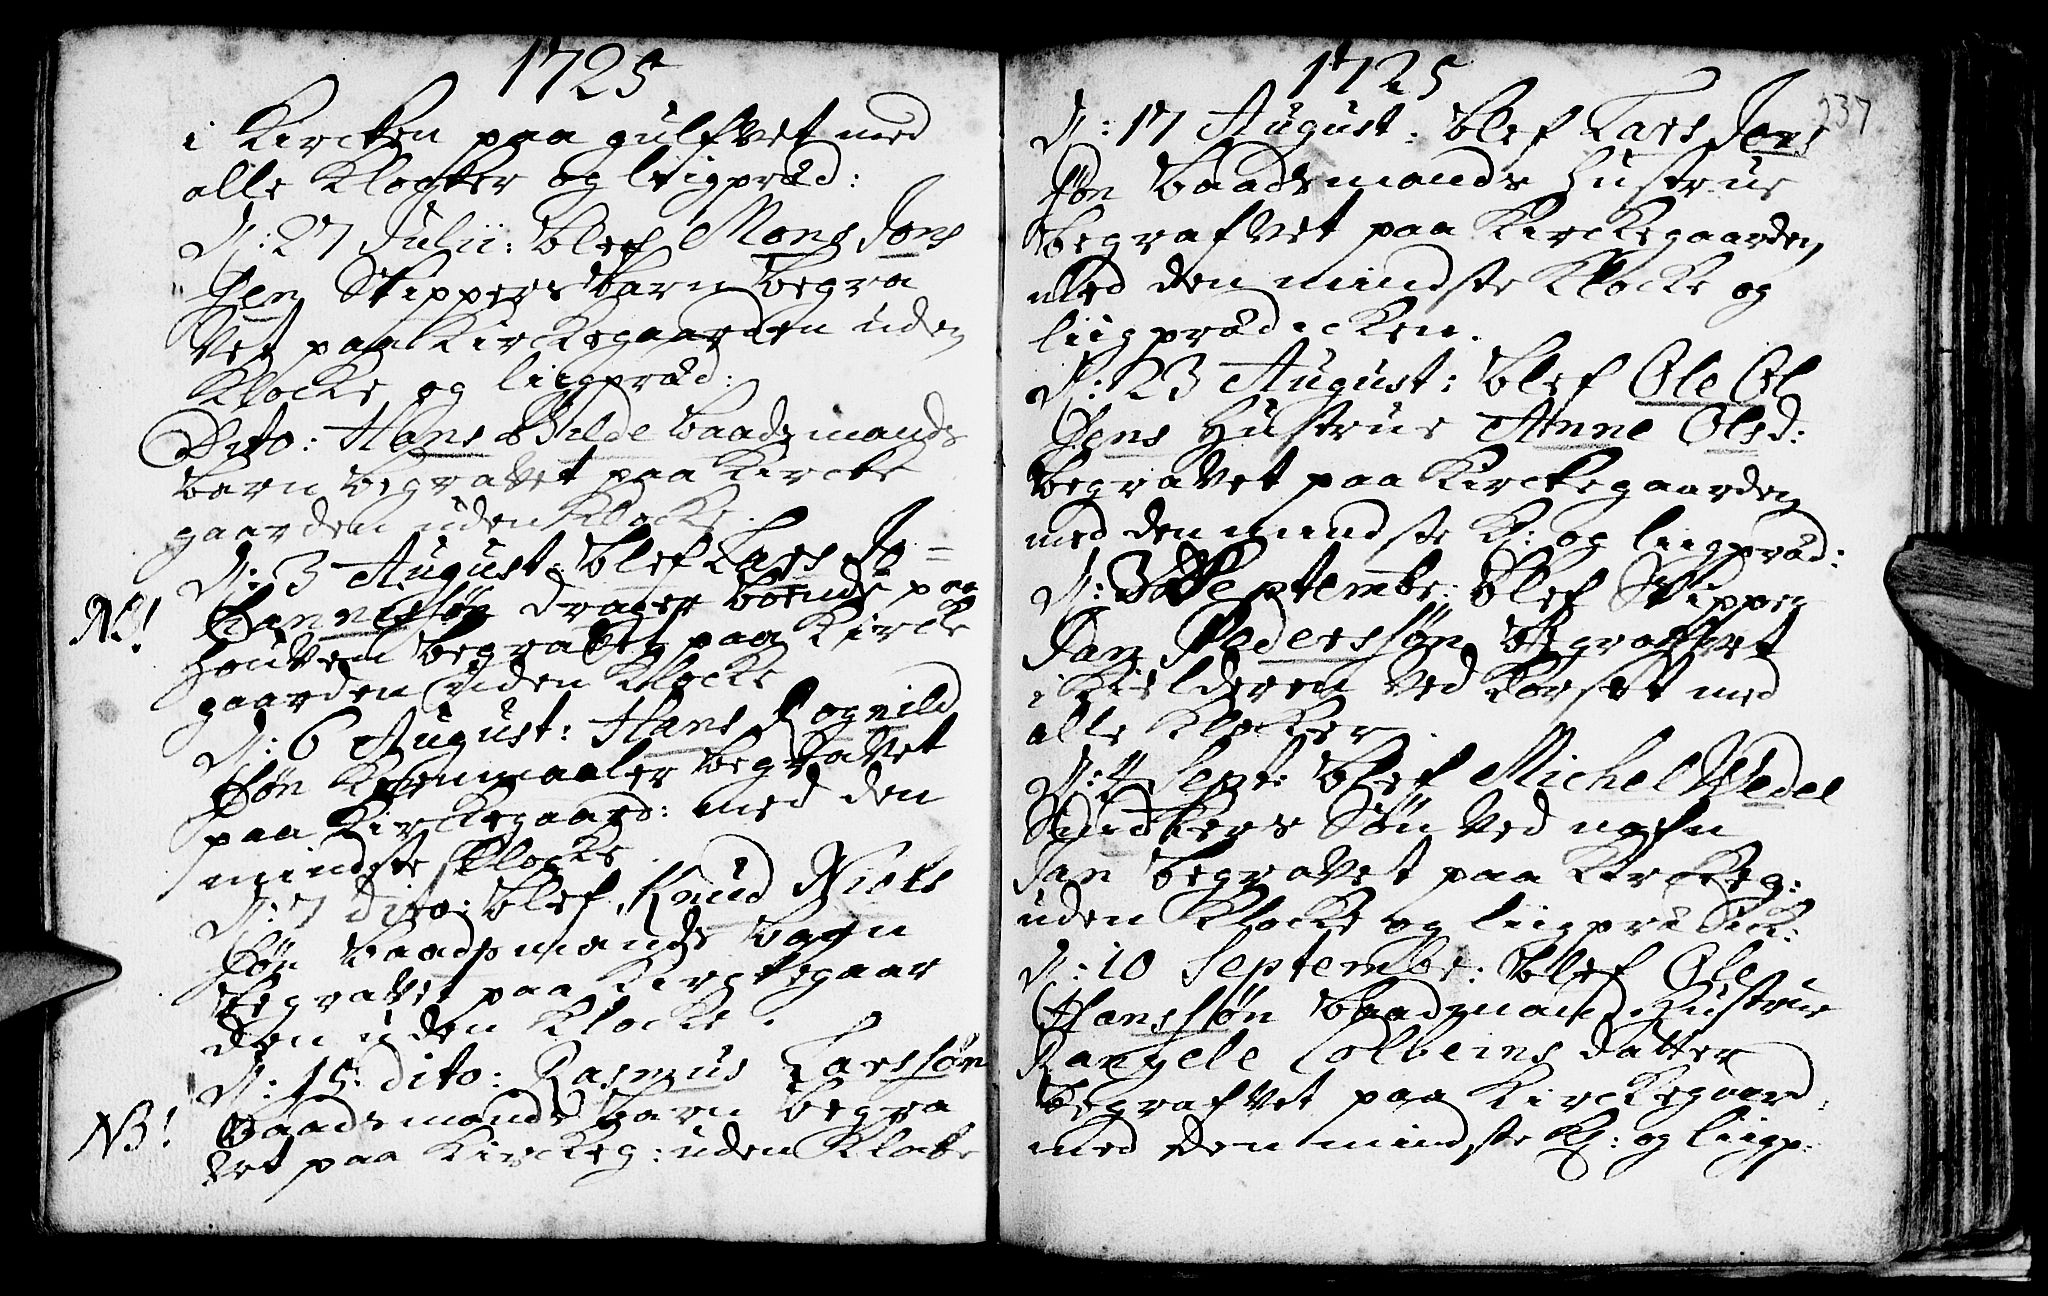 1725
i Kircken paa gulfvet med
alle Klocker og liigpræd:
D: 27 Julii: blef Mons Jons
Sen Skippers barn begra
vet paa Kirckegaarden uden
Klocke og liigpræd:
Dito: Hans Bilde baadsmands
barn begravet paa Kircke
gaarden uden Klocke.
D: 3 August: blef Lars Jo=
NB! hannessøn drager boende paa
begravet paa Kircke
gaarden uden Klocke
D: 6 August: Hans Rognild
Søn begravet
paa Kirckegaard: med den
mindste Klocke.
D: 7 dito: blef Knud Niels
Søn baadsmands barn
begravet paa Kirckegaar
den uden Klocke.
D: 15 dito: Rasmus Larssøn
NB! baadsmands barn begra
vet paa Kirckeg: uden Klocke
1725
237
D: 17 August: blef Lars Jens
Søn baadsmands Hustrue
begrafvet paa Kirckegaarden
med den mindste Klocke og
liigprædicken.
D: 23 August: blef Ole Ol
Sens Hustrue Anne Olsd:
begravet paa Kirckegaarden
med den mindste Kl: og liigpræd:
D: 3 Septembr: blef Skipper
Jan Pederssøn begravet
i Kielderen ved Korset med
alle Klocker.
D: 4 Sept: blef Michel Wedel
Snidkers Søn ved nafn
Jan begravet paa Kirckeg:
uden Klocke og liigprædick:
D: 10 Septembr: blef Ole
Hanssøn baadsmands Hustrue
Rangele Colbeins datter
begrafvet paa Kirckegaard:
med den mindste Kl: og liigp: